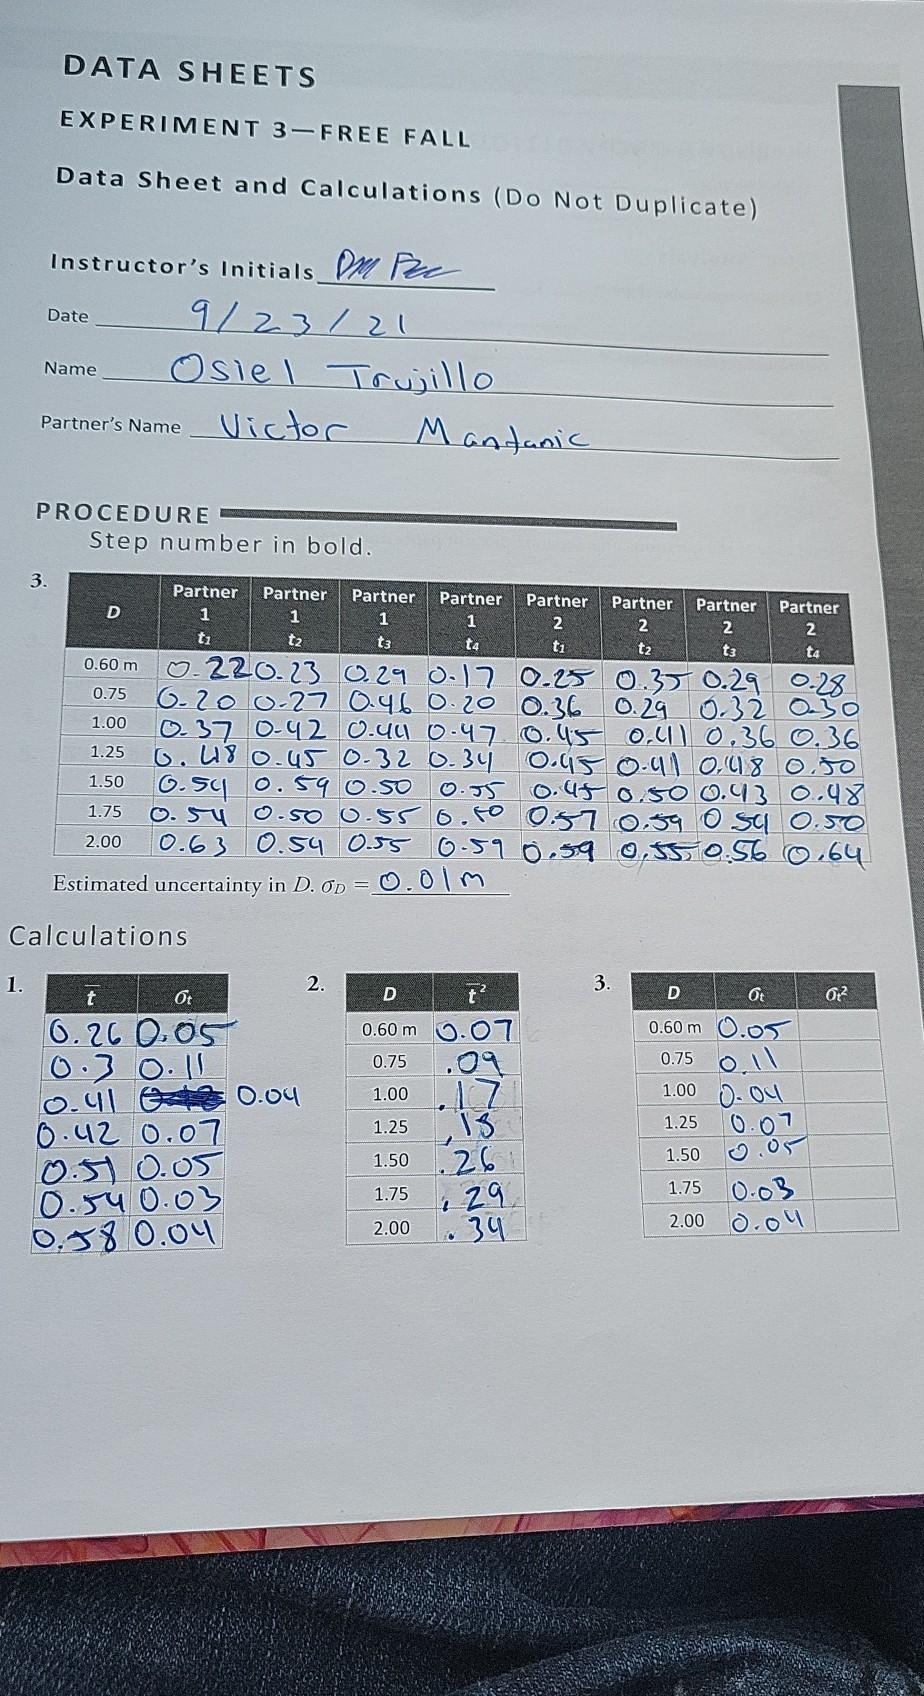 DATA SHEETS
EXPERIMENT 3—FREE FALL
Data Sheet and Calculations (Do Not Duplicate)
Instructor's Initials
Date 9/23/21
Name Osiel Trujillo
Partner's Name Victor Mantanic
PROCEDURE
Step number in bold.
3.
D Partner 1 t1 Partner 1 t2 Partner 1 t3 Partner 1 t4 Partner 2 t1 Partner 2 t2 Partner 2 t3 Partner 2 t4
0.60 m 0.22 0.23 0.29 0.17 0.25 0.35 0.29 0.28
0.75 0.20 0.27 0.46 0.20 0.36 0.29 0.32 0.30
1.00 0.37 0.42 0.44 0.47 0.45 0.41 0.36 0.36
1.25 0.48 0.45 0.32 0.34 0.45 0.41 0.48 0.50
1.50 0.54 0.59 0.50 0.55 0.45 0.50 0.43 0.48
1.75 0.54 0.50 0.55 0.50 0.57 0.59 0.54 0.50
2.00 0.63 0.54 0.55 0.59 0.59 0.55 0.56 0.64
Estimated uncertainty in D. σD = 0.01m
Calculations
1.
t̄ σt
0.26 0.05
0.3 0.11
0.41 0.04
0.42 0.07
0.51 0.05
0.54 0.03
0.58 0.04
2.
D t̄²
0.60 m 0.07
0.75 .09
1.00 .17
1.25 .18
1.50 .26
1.75 .29
2.00 .34
3.
D σt σt²
0.60 m 0.05
0.75 0.11
1.00 0.04
1.25 0.07
1.50 0.05
1.75 0.03
2.00 0.04